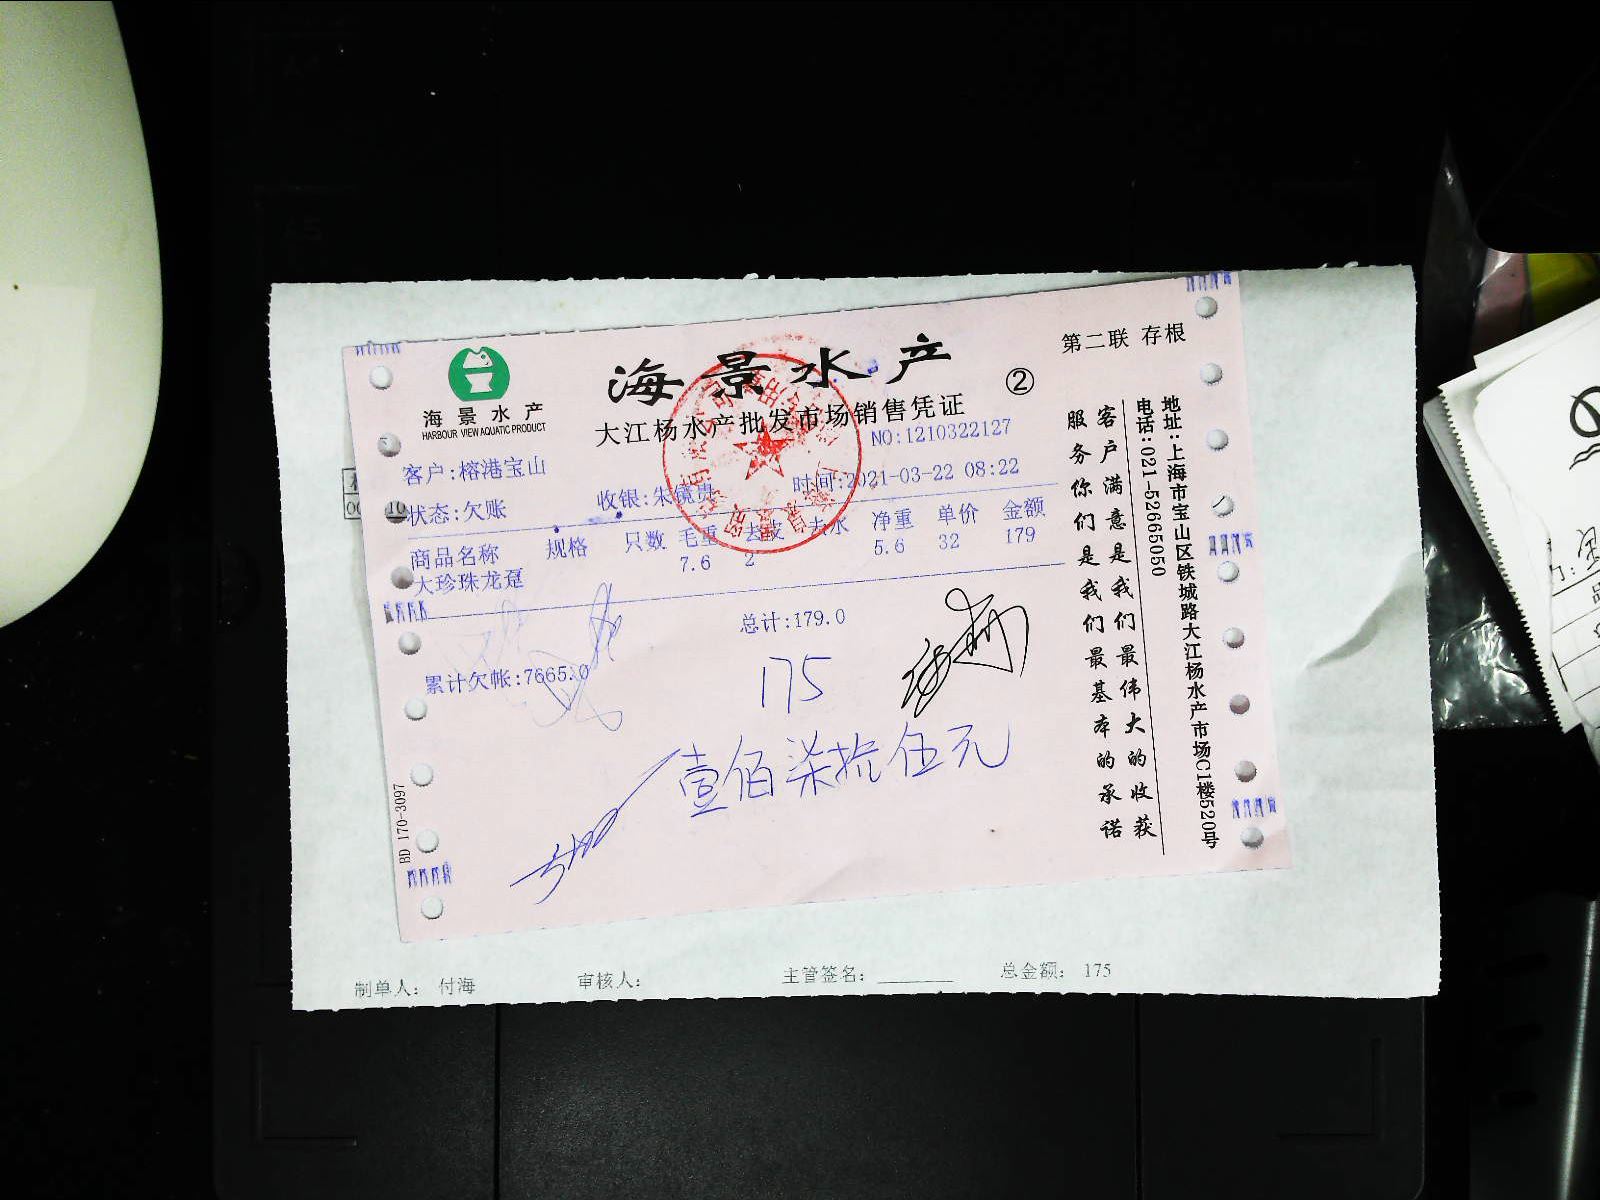 第二联 存根
海景水产
②
海景水产
HARBOUR VIEW AQUATIC PRODUCT
大江杨水产批发市场销售凭证
NO:1210322127
客户:榕港宝山
时间:2021-03-22 08:22
状态:欠账
收银:朱镜贵
商品名称 规格 只数 毛重 去皮 去水 净重 单价 金额
大珍珠龙趸 7.6 2 5.6 32 179
总计:179.0
累计欠帐:7665.0
175
壹佰柒拾伍元
客户满意是我们最伟大的收获
服务你们是我们最基本的承诺
地址:上海市宝山区铁城路大江杨水产市场C1楼520号
电话:021-52665050
BD 170-3097
制单人: 付海 审核人: 主管签名: 总金额: 175